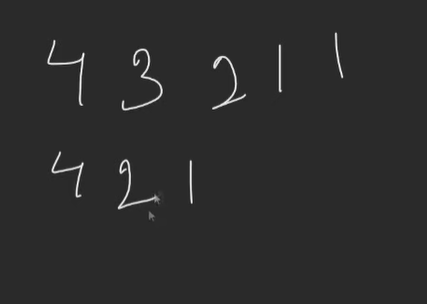 4 3 2 1 1
4 2 1